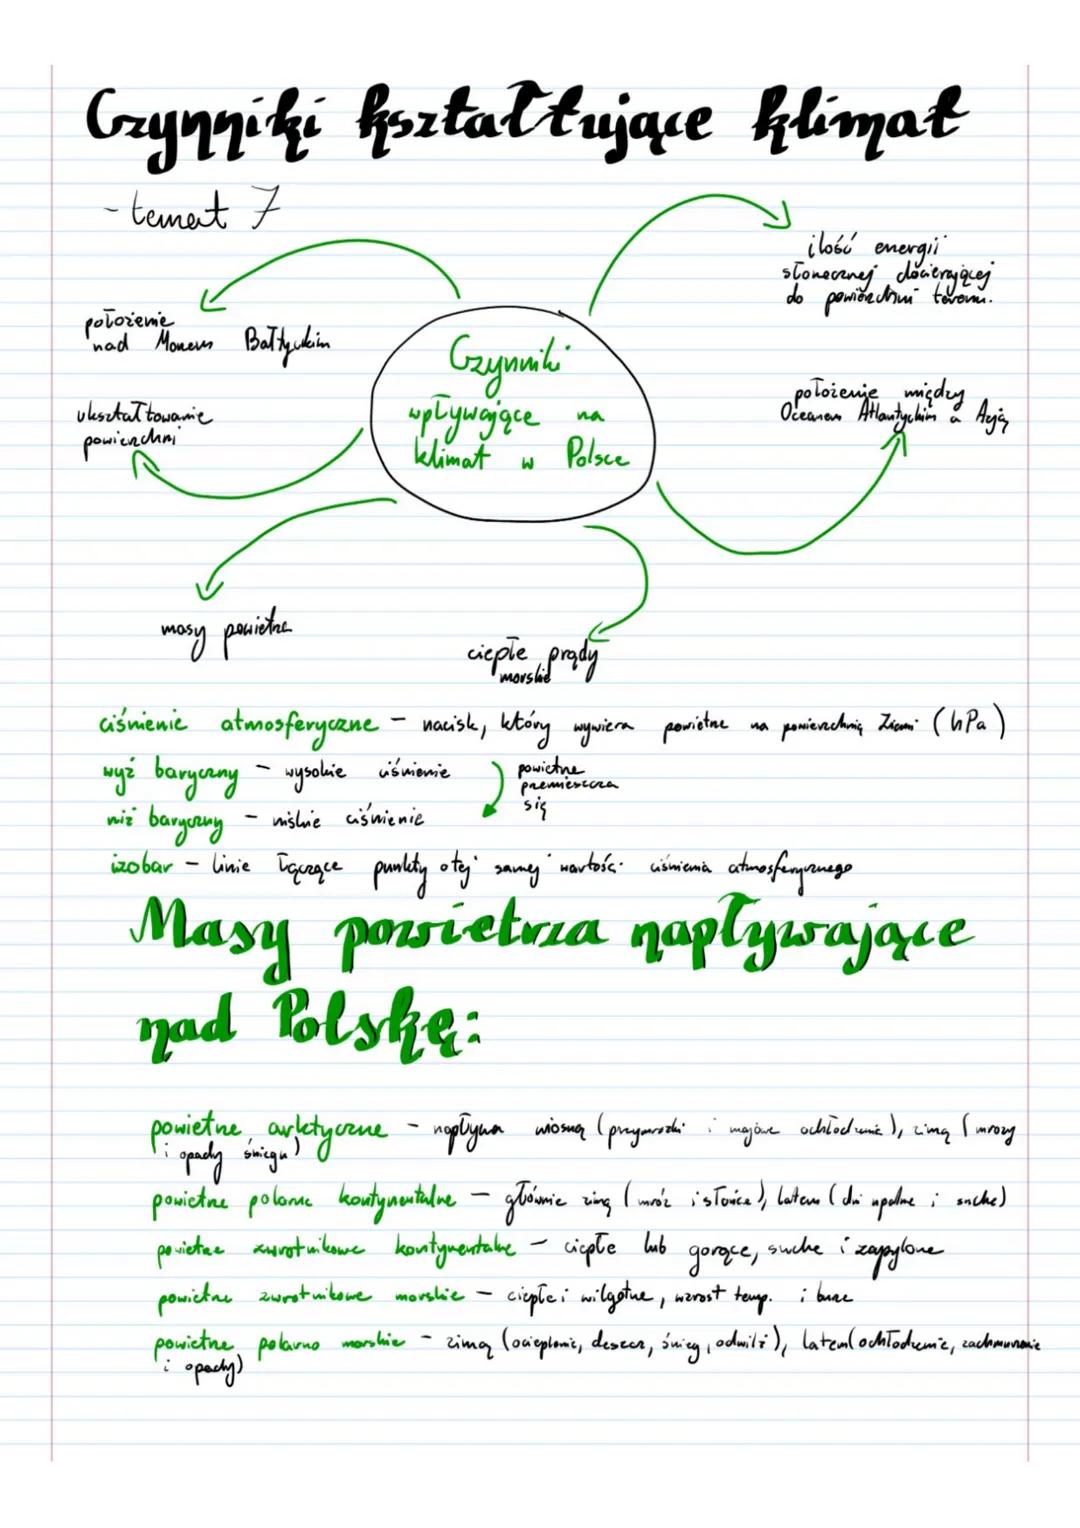 Czynniki kształtujące klimat
- temat 7
ilość energii
słonecznej docierającej
do powierzchni terenu.
położenie
nad Morzem Bałtyckim
Czynniki
wpływające na
klimat w Polsce
położenie między
Oceanem Atlantyckim a Azją
ukształtowanie
powierzchni
masy powietrza
ciepłe prądy
morskie
ciśnienie atmosferyczne - nacisk, który wywiera powietrze na powierzchnię Ziemi (hPa)
wyż baryczny - wysokie ciśnienie
powietrze
przemieszcza
się
niż baryczny - niskie ciśnienie
izobar - linie łączące punkty o tej samej wartości ciśnienia atmosferycznego
Masy powietrza napływające
nad Polskę:
powietrze arktyczne - napływa wiosną (przymrozki i majowe ochłodzenie), zimą (mrozy
i opady śniegu)
powietrze polarne kontynentalne - głównie zimą (mróz i słońce), latem (dni upalne i suche)
powietrze zwrotnikowe kontynentalne - ciepłe lub gorące, suche i zapylone
powietrze zwrotnikowe morskie - ciepłe i wilgotne, wzrost temp. i burze
powietrze polarno morskie - zimą (ocieplenie, deszcz, śnieg, odwilż), latem (ochłodzenie, zachmurzenie
i opady)